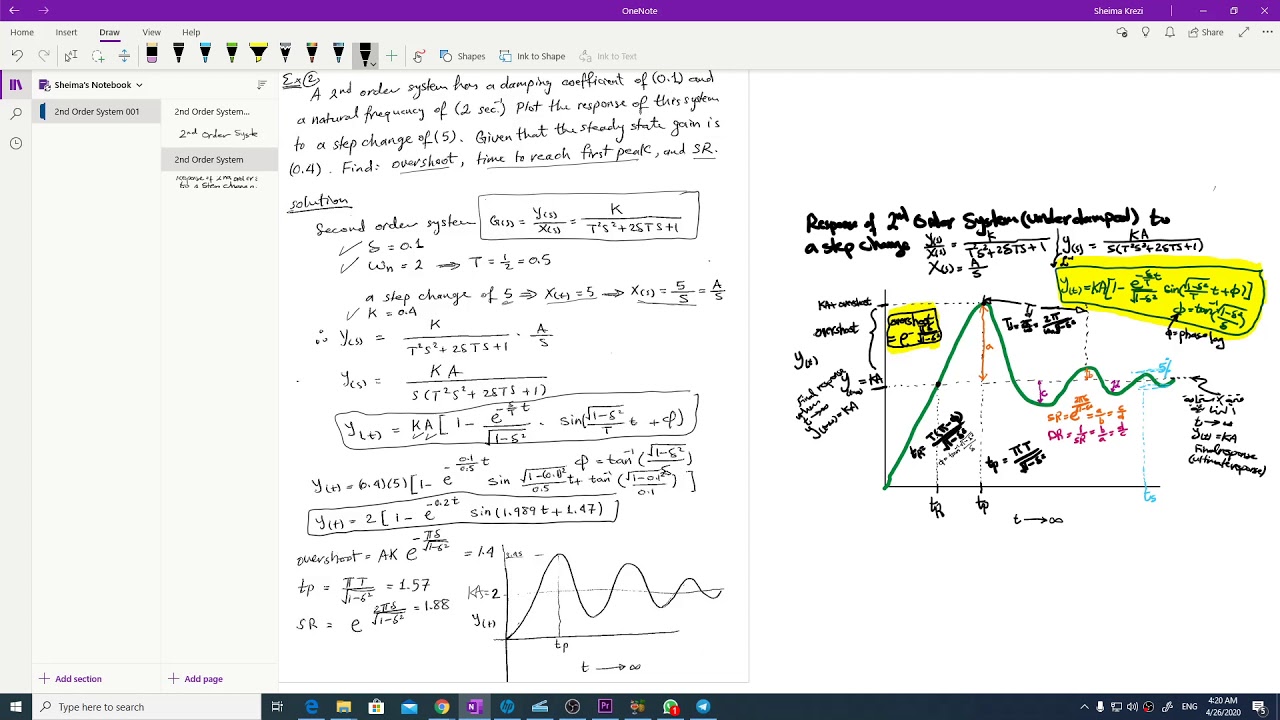 OneNote
Sheima Krezi
Home Insert Draw View Help
Share
Shapes
Ink to Shape
Ink to Text
Sheima's Notebook
2nd Order System 001
2nd Order System...
2nd Order Syste
2nd Order System
Response of 2nd order
to a step change.
Add section
Add page
Ex(2)
A 2nd order system has a damping coefficient of (0.1) and
a natural frequency of (2 sec⁻¹) Plot the response of this system
to a step change of (5). Given that the steady state gain is
(0.4). Find: overshoot, time to reach first peak, and SR.
solution
Second order system G(s) = Y(s)/X(s) = K/(T²s²+2δTS+1)
✓ δ = 0.1
✓ ωn = 2 ⟹ T = 1/2 = 0.5
a step change of 5 ⟹ X(t) = 5 ⟹ X(s) = 5/S = A/S
✓ K = 0.4
∴ Y(s) = K/(T²s²+2δTS+1) · A/S
Y(s) = KA/(S(T²s²+2δTS+1))
Y(t) = KA[1 - e^(-δ/T t)/√(1-δ²) · sin(√(1-δ²)/T t + φ)]
φ = tan⁻¹(√(1-δ²)/δ)
Y(t) = (0.4)(5)[1 - e^(-0.1/0.5 t) sin √(1-(0.1)²)/0.5 t + tan⁻¹(√(1-0.1²)/0.1)]
Y(t) = 2[1 - e^(-0.2t) sin(1.989t + 1.47)]
overshoot = AK e^(-πδ/√(1-δ²)) = 1.4
tp = πT/√(1-δ²) = 1.57
SR = e^(2πδ/√(1-δ²)) = 1.88
KA=2
Y(t)
tp
t ⟶ ∞
Response of 2nd Order System (underdamped) to
a step change Y(s)/X(s) = K/(T²s²+2δTS+1) Y(s) = KA/(S(T²s²+2δTS+1))
X(s) = A/S
L⁻¹
Y(t) = KA[1 - e^(-δ/T t)/√(1-δ²) sin(√(1-δ²)/T t + φ)]
φ = tan⁻¹(√(1-δ²)/δ)
φ = phase lag
KA + overshoot
overshoot
overshoot
= e^(-πδ/√(1-δ²))
Y(t)
Find response
when
t→∞
y(t→∞) = KA
y(∞) = KA
a
b
c
5%
SR = e^(2πδ/√(1-δ²)) = a/b = c/d
DR = 1/SR = b/a = d/c
tp = πT/√(1-δ²)
t ⟶ ∞
y(∞) = KA
Final response
(ultimate response)
tR
tp
ts
t ⟶ ∞
Type here to search
ENG
4:20 AM
4/26/2020